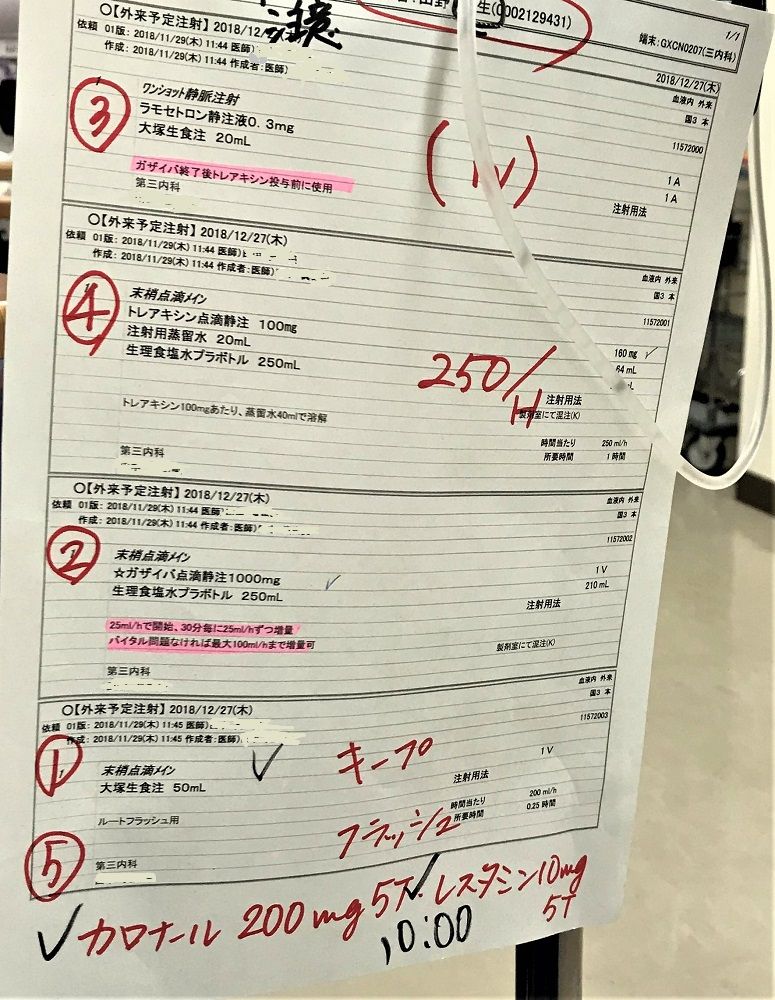 生(0002129431)
1/1
〇【外来予定注射】 2018/12/
端末:GXCN0207(三内科)
依頼 01版: 2018/11/29(木) 11:44 医師)
作成: 2018/11/29(木) 11:44 作成者:医師)
2018/12/27(木)
血液内 外来
国3 本
③
ワンショット静脈注射
ラモセトロン静注液0.3mg
大塚生食注 20mL
11572000
(IV)
1 A
1 A
注射用法
ガザイバ終了後トレアキシン投与前に使用
第三内科
〇【外来予定注射】 2018/12/27(木)
依頼 01版: 2018/11/29(木) 11:44 医師)
作成: 2018/11/29(木) 11:44 作成者:医師)
血液内 外来
国3 本
11572001
④
末梢点滴メイン
トレアキシン点滴静注 100mg
注射用蒸留水 20mL
生理食塩水プラボトル 250mL
160 mg ✓
64 mL
mL
250/H
注射用法
製剤室にて混注(K)
トレアキシン100mgあたり、蒸留水40mlで溶解
時間当たり 250 ml/h
所要時間 1 時間
第三内科
〇【外来予定注射】 2018/12/27(木)
依頼 01版: 2018/11/29(木) 11:44 医師)
作成: 2018/11/29(木) 11:44 作成者:医師)
血液内 外来
国3 本
11572002
②
末梢点滴メイン
☆ガザイバ点滴静注1000mg ✓
生理食塩水プラボトル 250mL
1 V
210 mL
注射用法
25ml/hで開始、30分毎に25ml/hずつ増量
バイタル問題なければ最大100ml/hまで増量可
製剤室にて混注(K)
第三内科
〇【外来予定注射】 2018/12/27(木)
依頼 01版: 2018/11/29(木) 11:45 医師)
作成: 2018/11/29(木) 11:45 作成者:医師)
血液内 外来
国3 本
11572003
①
末梢点滴メイン ✓ キープ
大塚生食注 50mL
1 V
注射用法
ルートフラッシュ用
時間当たり 200 ml/h
所要時間 0.25 時間
フラッシュ
⑤
第三内科
✓カロナール 200mg 5T ✓レスタミン10mg
5T
10:00